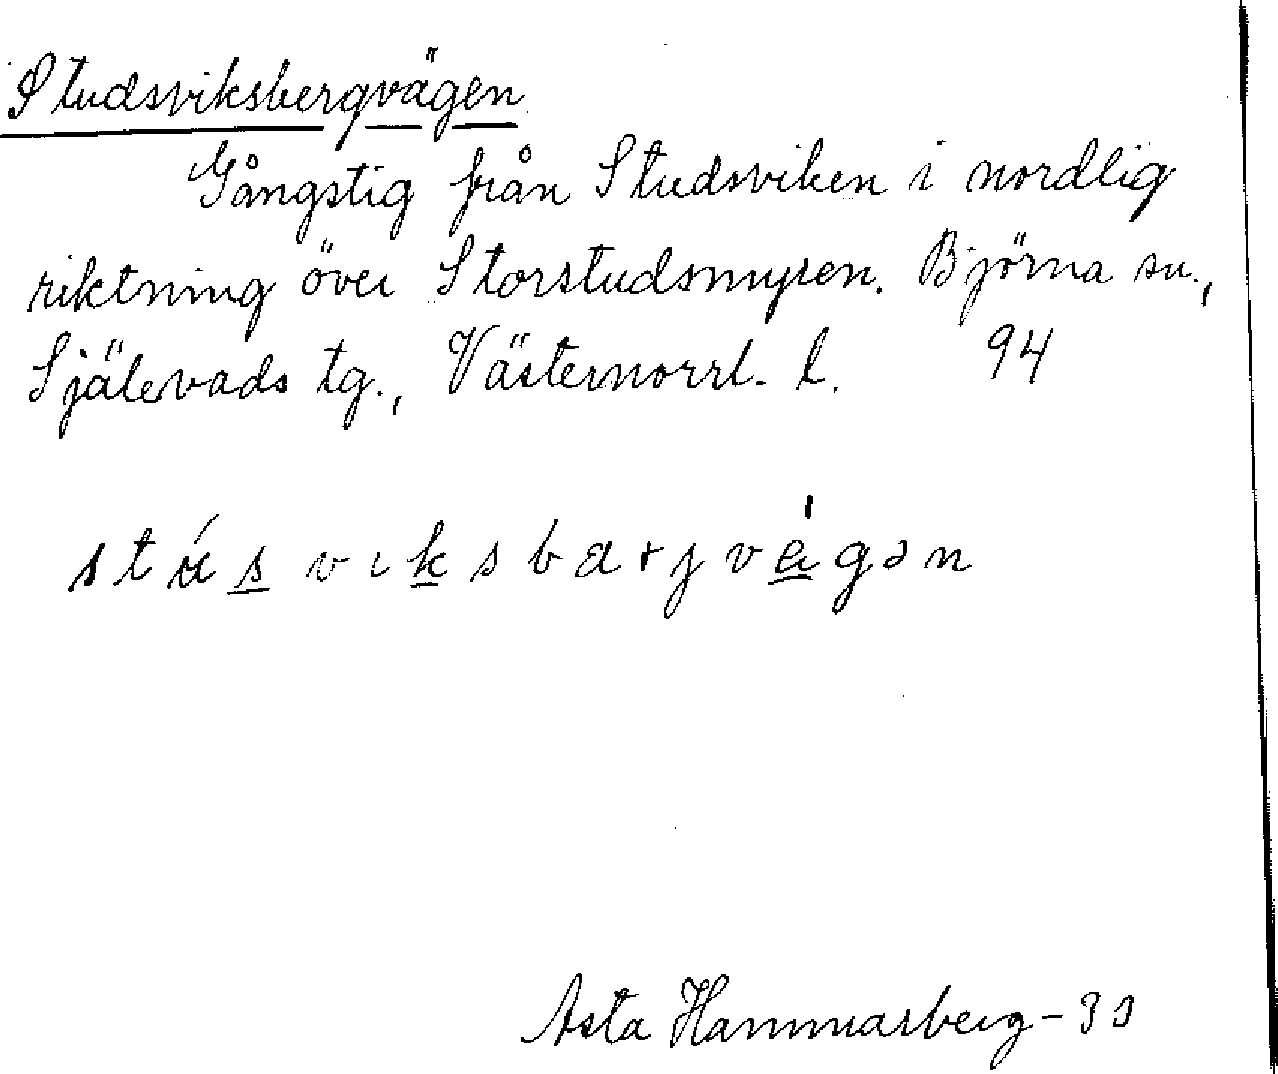 Studsviksbergvägen
Gångstig från Studsviken i nordlig
riktning över Storstudsmyren. Björna sn.,
Själevads tg., Västernorrl. l. 94
Asta Hammarberg -